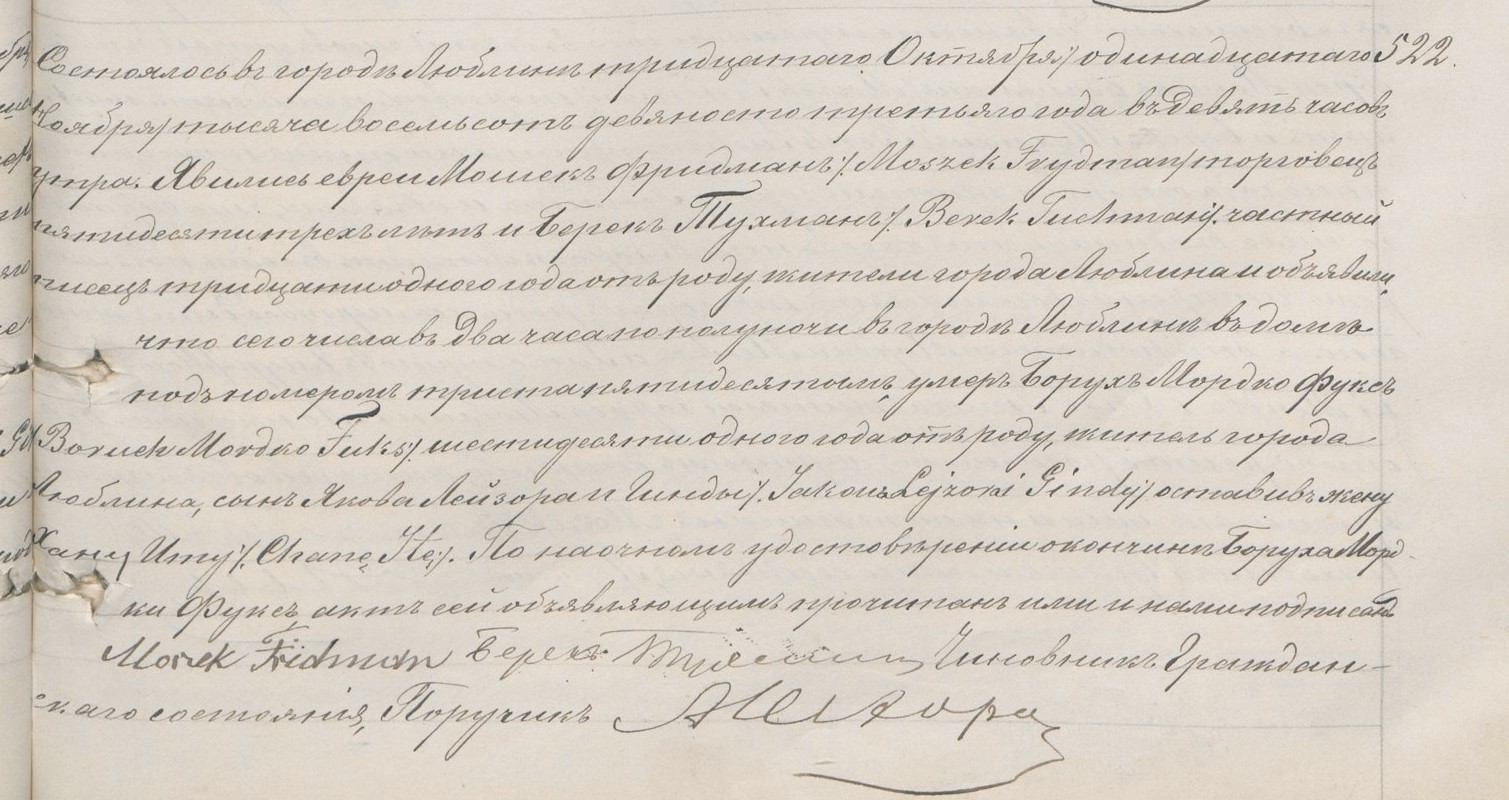 Состоялось въ городѣ Люблинѣ тридцатаго Октября /одинадцатаго 522.
Ноября/ тысяча восемьсотъ девяносто третьяго года въ девять часовъ
утра. Явились евреи Мошекъ Фридманъ /Moszek Frydman/ торговецъ
пятидесяти трехъ лѣтъ и Берекъ Тухманъ /Berek Tuchman/ частный
писецъ тридцати одного года отъ роду, жители города Люблина и объявили,
что сего числа въ два часа по полуночи въ городѣ Люблинѣ въ домѣ
подъ номеромъ триста пятидесятымъ, умеръ Борухъ Мордко Фуксъ
Boruch Mordko Fuks/ шестидесяти одного года отъ роду, житель города
Люблина, сынъ Якова Лейзора и Гинды /Jakowa Lejzora i Gindy/ оставивъ жену
Хану Иту /Chanę Itę/. По наочномъ удостовѣреніи о кончинѣ Боруха Морд-
ки Фуксъ, актъ сей объявляющимъ прочитанъ ими и нами подписанъ
Moszek Fridman Берекъ Чиновникъ Граждан-
скаго состоянія, Поручикъ